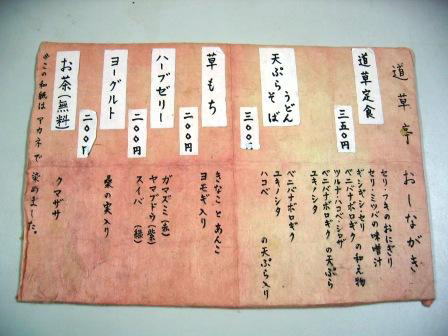 道草亭 おしながき
道草定食
三五0円
セリ・フキのおにぎり
セリ・ミツバの味噌汁
ギシギシ・セリ
ベニバナボロギク の和え物
ツルナ・ハコベ・シロザ
ベニバナボロギク の天ぷら
ユキノシタ
天ぷら うどん
そば
三00
ベニバナボロギク
ユキノシタ の天ぷら入り
ハコベ
草もち
二00円
きなことあんこ
ヨモギ入り
ハーブゼリー
二00円
ガマズミ(赤)
ヤマブドウ(紫)
スイバ (緑)
ヨーグルト
二00円
桑の実入り
お茶(無料)
クマザサ
※この和紙はアカネで染めました。